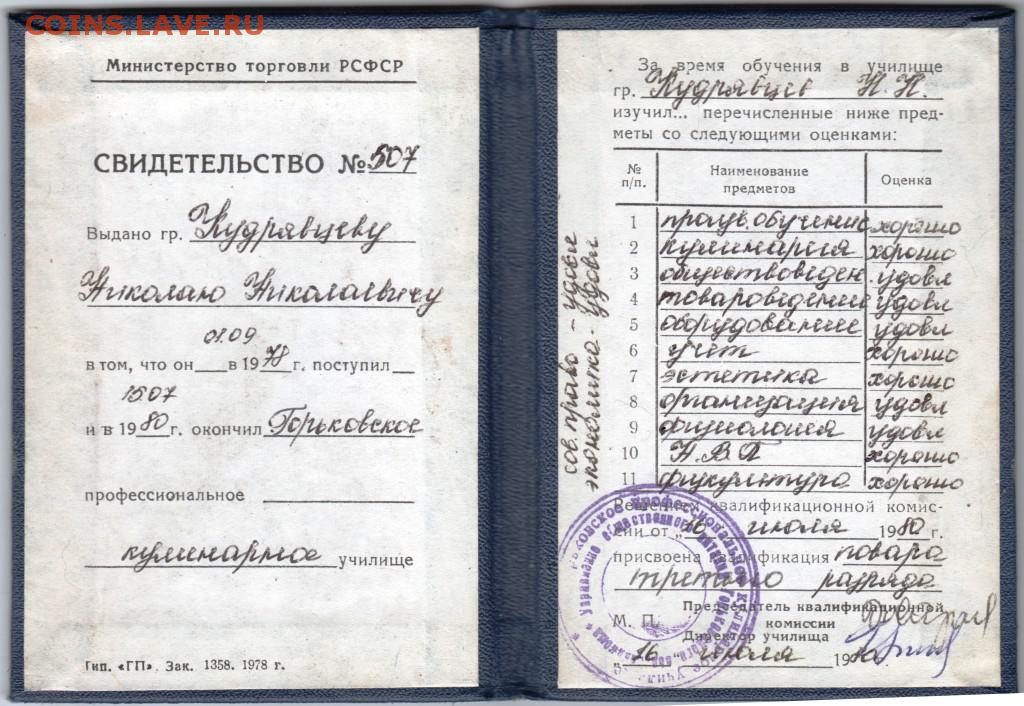 COINS.LAVE.RU
Министерство торговли РСФСР
СВИДЕТЕЛЬСТВО № 507
Выдано гр. Кудрявцеву
Николаю Николаевичу
01.09
в том, что он в 1978 г. поступил
15 07
и в 1980 г. окончил Горьковское
профессиональное
кулинарное училище
Тип. «ГП». Зак. 1358. 1978 г.
За время обучения в училище
гр. Кудрявцев Н. Н.
изучил... перечисленные ниже пред-
меты со следующими оценками:
№ п/п. Наименование предметов Оценка
1 произв. обучение хорошо
2 кулинария хорошо
3 обществоведен. удовл
4 товароведение удовл
5 оборудование удовл
6 учет хорошо
7 эстетика хорошо
8 организация удовл
9 физиология удовл
10 Н.В.П хорошо
11 физкультура хорошо
сов. право - удовл
экономика - удовл.
Решением квалификационной комис-
сии от „16 июля 1980 г.
присвоена квалификация повара
третьего разряда
Председатель квалификационной
комиссии
М. П.
Директор училища
„16" июля 1980